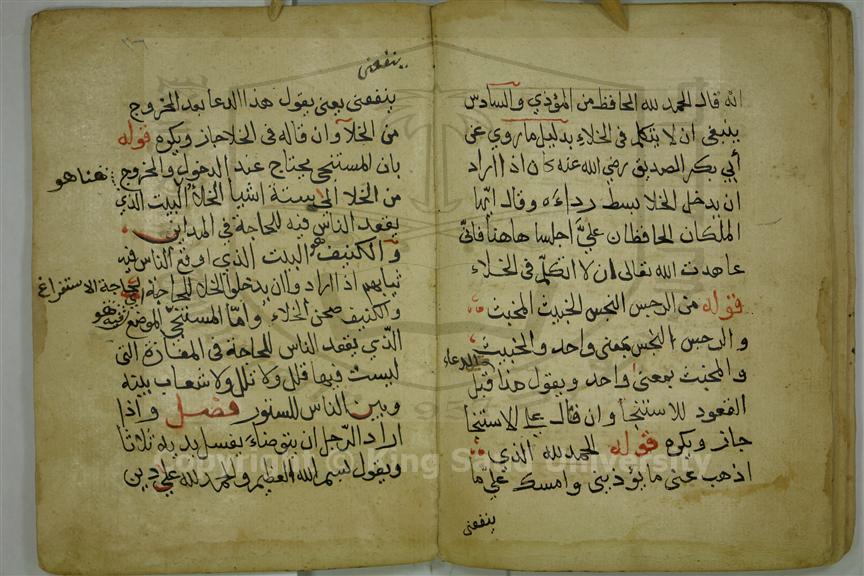 الله قال الحمد لله الحافظ من المؤذي والسادس
ينبغي ان لا يتكلم في الخلاء بدليل ما روي عن
أبي بكر الصديق رضي الله عنه كان اذا اراد
ان يدخل الخلا بسط رداءه وقال ايها
الملكان الحافظان عليَّ اجلسا هاهنا فانّي
عاهدت الله تعالى ان لا اتكلّم في الخلاء
قوله من الرجس النجس الخبيث المخبث
و الرجس النجس بمعنى واحد والخبيث
و المخبث بمعنى واحد ويقول هذا قبل
القعود للاستنجآ وان قال على الاستنجا
جاز ويكره قوله الحمد لله الذي
اذهب عني ما يؤذيني وامسك علي ما
ينفعني
ينفعني
ينفعني يعني يقول هذا الدعا بعد الخروج
من الخلآ وان قاله في الخلا جاز ويكره قوله
بان المستنجي يحتاج عند الدخول والخروج
من الخلا الى ستة اشيا الخلا البيت الذي
هناهو
يقعد الناس فيه للحاجة في المداين
و الكنيف هو البيت الذي اوقع الناس فيه
ثيابهم اذا اراد وان يدخلوا الخلا للحاجة
لحاجة الاستفراغ
والكنيف صحن الخلاء واما المستنجى الموضع
الذّي يقعد الناس للحاجة في المفازة التي
ليست فيها قلل ولا تلل ولا شعاب بينه
وبين الناس للستور فصل واذا
اراد الرّجل ان يتوضاء يغسل يديه ثلاثا
ويقول بسم الله العظيم والحمد لله على دين
Copyright © King Saud University